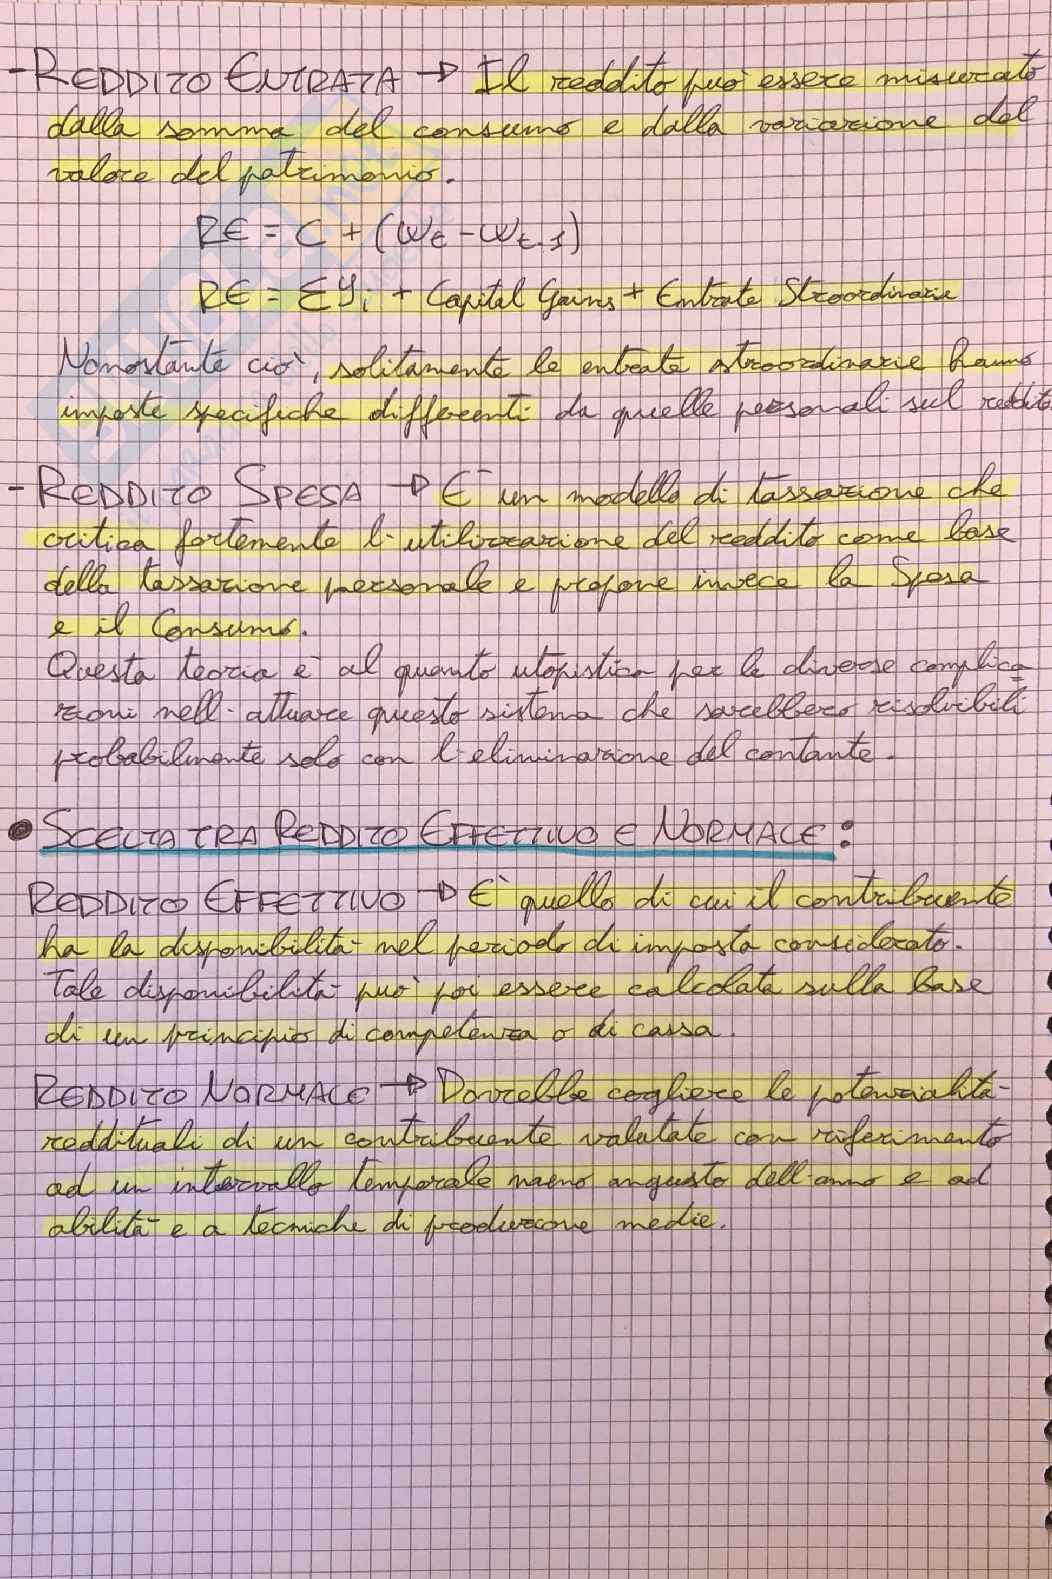 - REDDITO ENTRATA → Il reddito può essere misurato
dalla somma del consumo e dalla variazione del
valore del patrimonio.
RE = C + (Wt - Wt-1)
RE = ΣYi + Capital Gains + Entrate Straordinarie
Nonostante ciò, solitamente le entrate straordinarie hanno
imposte specifiche differenti da quelle personali sul reddito
- REDDITO SPESA → È un modello di tassazione che
critica fortemente l'utilizzazione del reddito come base
della tassazione personale e propone invece la Spesa
e il Consumo.
Questa teoria è al quanto utopistica per le diverse complica
zioni nell'attuare questo sistema che sarebbero risolvibili
probabilmente solo con l'eliminazione del contante.
• SCELTA TRA REDDITO EFFETTIVO E NORMALE:
REDDITO EFFETTIVO → È quello di cui il contribuente
ha la disponibilità nel periodo di imposta considerato.
Tale disponibilità può poi essere calcolata sulla base
di un principio di competenza o di cassa.
REDDITO NORMALE → Dovrebbe cogliere le potenzialità
reddituali di un contribuente valutate con riferimento
ad un intervallo temporale meno angusto dell'anno e ad
abilità e a tecniche di produzione medie.